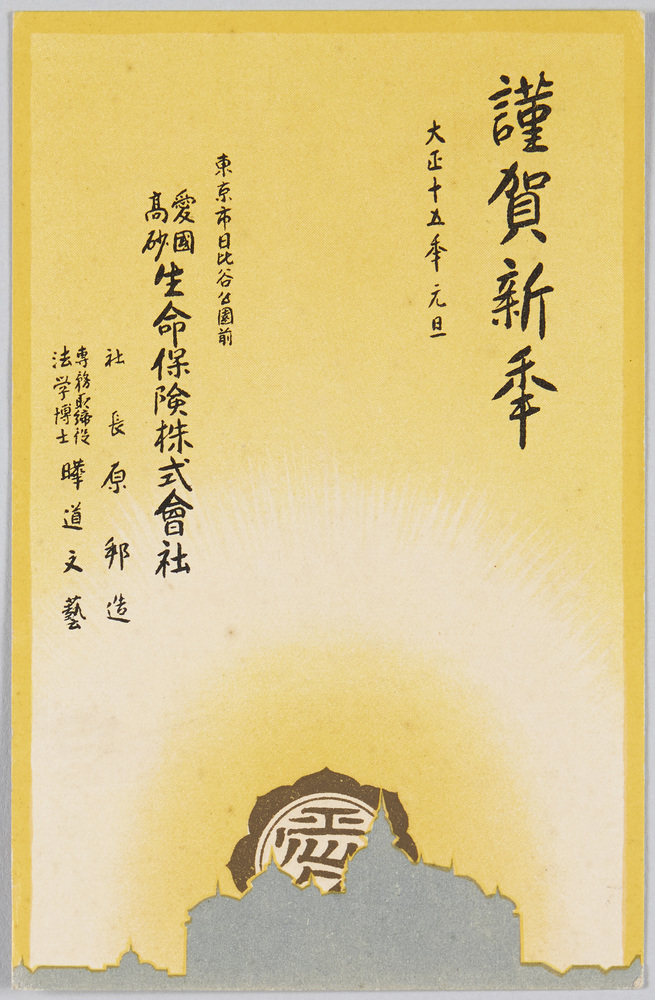 謹賀新年
大正十五年元旦
東京市日比谷公園前
愛國
高砂
生命保険株式會社
社長 原邦造
専務取締役
法学博士
曄道文藝
愛